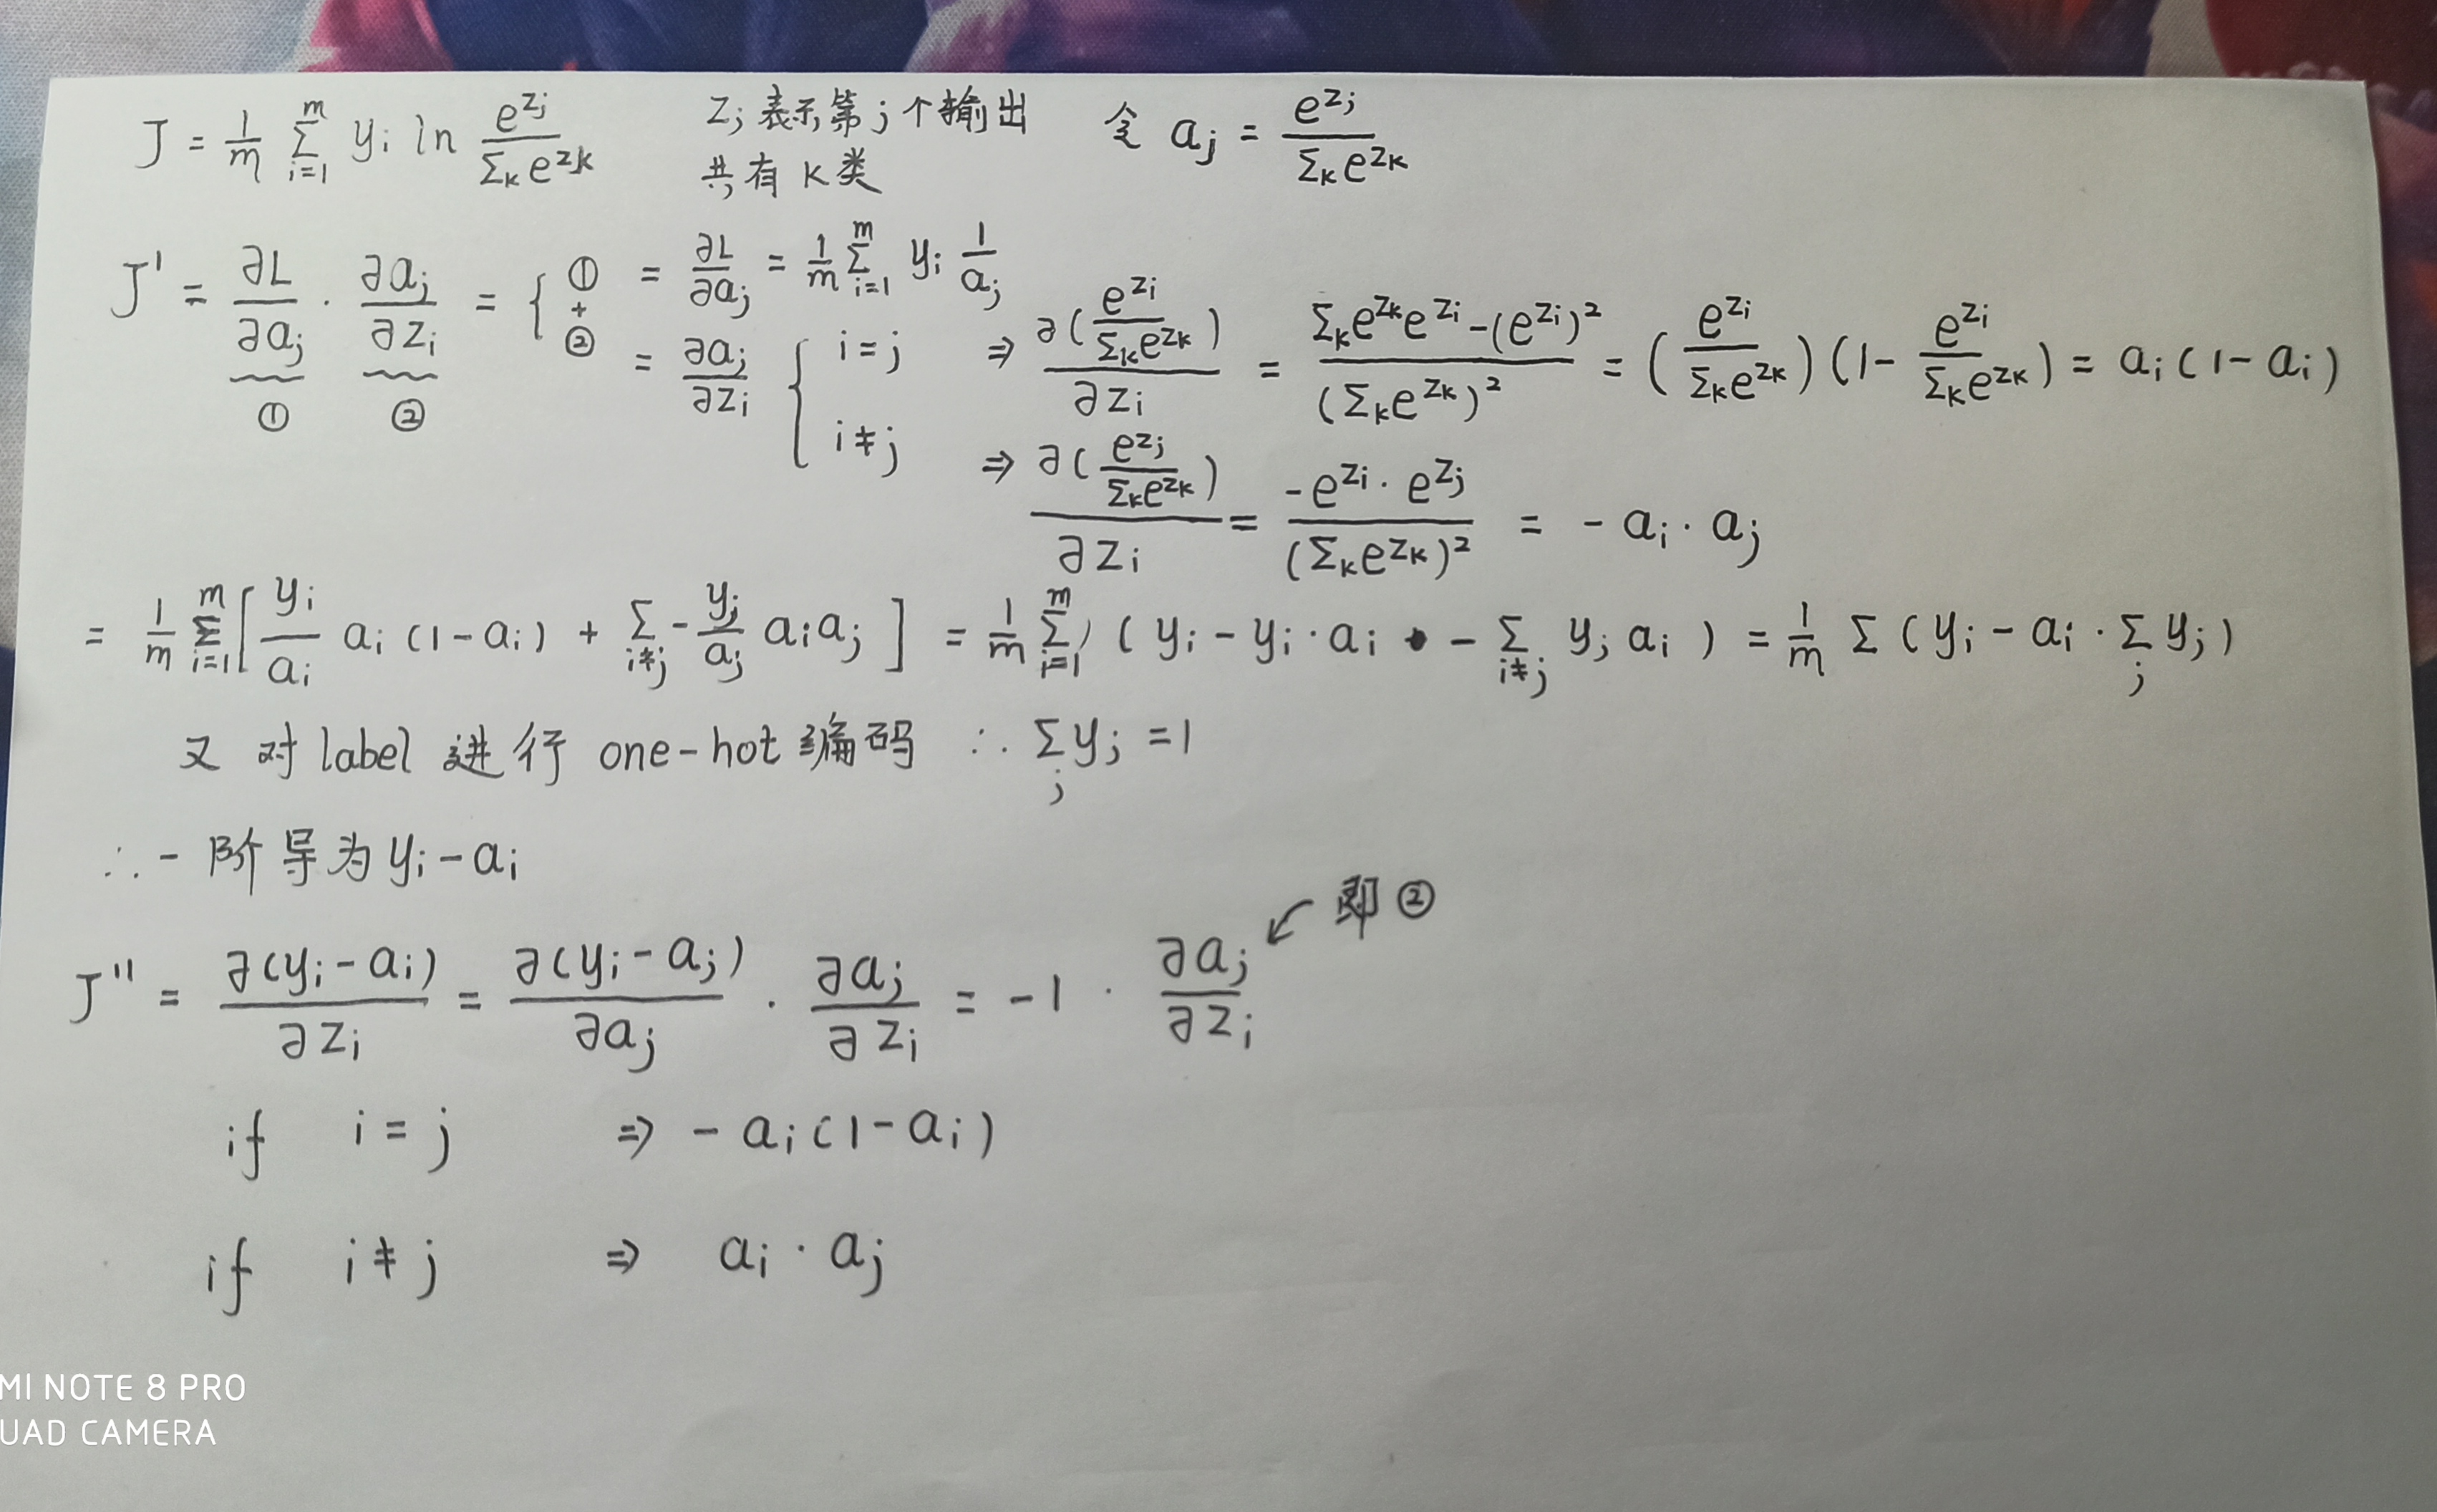 J = 1/m Σ_{i=1}^{m} y_i ln e^{z_j}/Σ_k e^{z_k} z_j 表示第 j 个输出 令 a_j = e^{z_j}/Σ_k e^{z_k}
共有 K 类
J' = ∂L/∂a_j · ∂a_j/∂z_i = { ① = ∂L/∂a_j = 1/m Σ_{i=1}^{m} y_i 1/a_j
① ② + ② = ∂a_j/∂z_i { i = j ⇒ ∂(e^{z_i}/Σ_k e^{z_k})/∂z_i = (Σ_k e^{z_k} e^{z_i} - (e^{z_i})²)/(Σ_k e^{z_k})² = (e^{z_i}/Σ_k e^{z_k})(1 - e^{z_i}/Σ_k e^{z_k}) = a_i(1-a_i)
i ≠ j ⇒ ∂(e^{z_j}/Σ_k e^{z_k})/∂z_i = -e^{z_i} · e^{z_j}/(Σ_k e^{z_k})² = - a_i · a_j
= 1/m Σ_{i=1}^{m} [ y_i/a_i a_i (1-a_i) + Σ_{i≠j} - y_j/a_j a_i a_j ] = 1/m Σ_{i=1}^{m} ( y_i - y_i · a_i - Σ_{i≠j} y_j a_i ) = 1/m Σ (y_i - a_i · Σ_j y_j)
又 对 label 进行 one-hot 编码 ∴ Σ_j y_j = 1
∴ 一阶导为 y_i - a_i
即 ②
J'' = ∂(y_i - a_i)/∂z_i = ∂(y_i - a_j)/∂a_j · ∂a_j/∂z_i = -1 · ∂a_j/∂z_i
if i = j ⇒ - a_i(1-a_i)
if i ≠ j ⇒ a_i · a_j
MI NOTE 8 PRO
UAD CAMERA